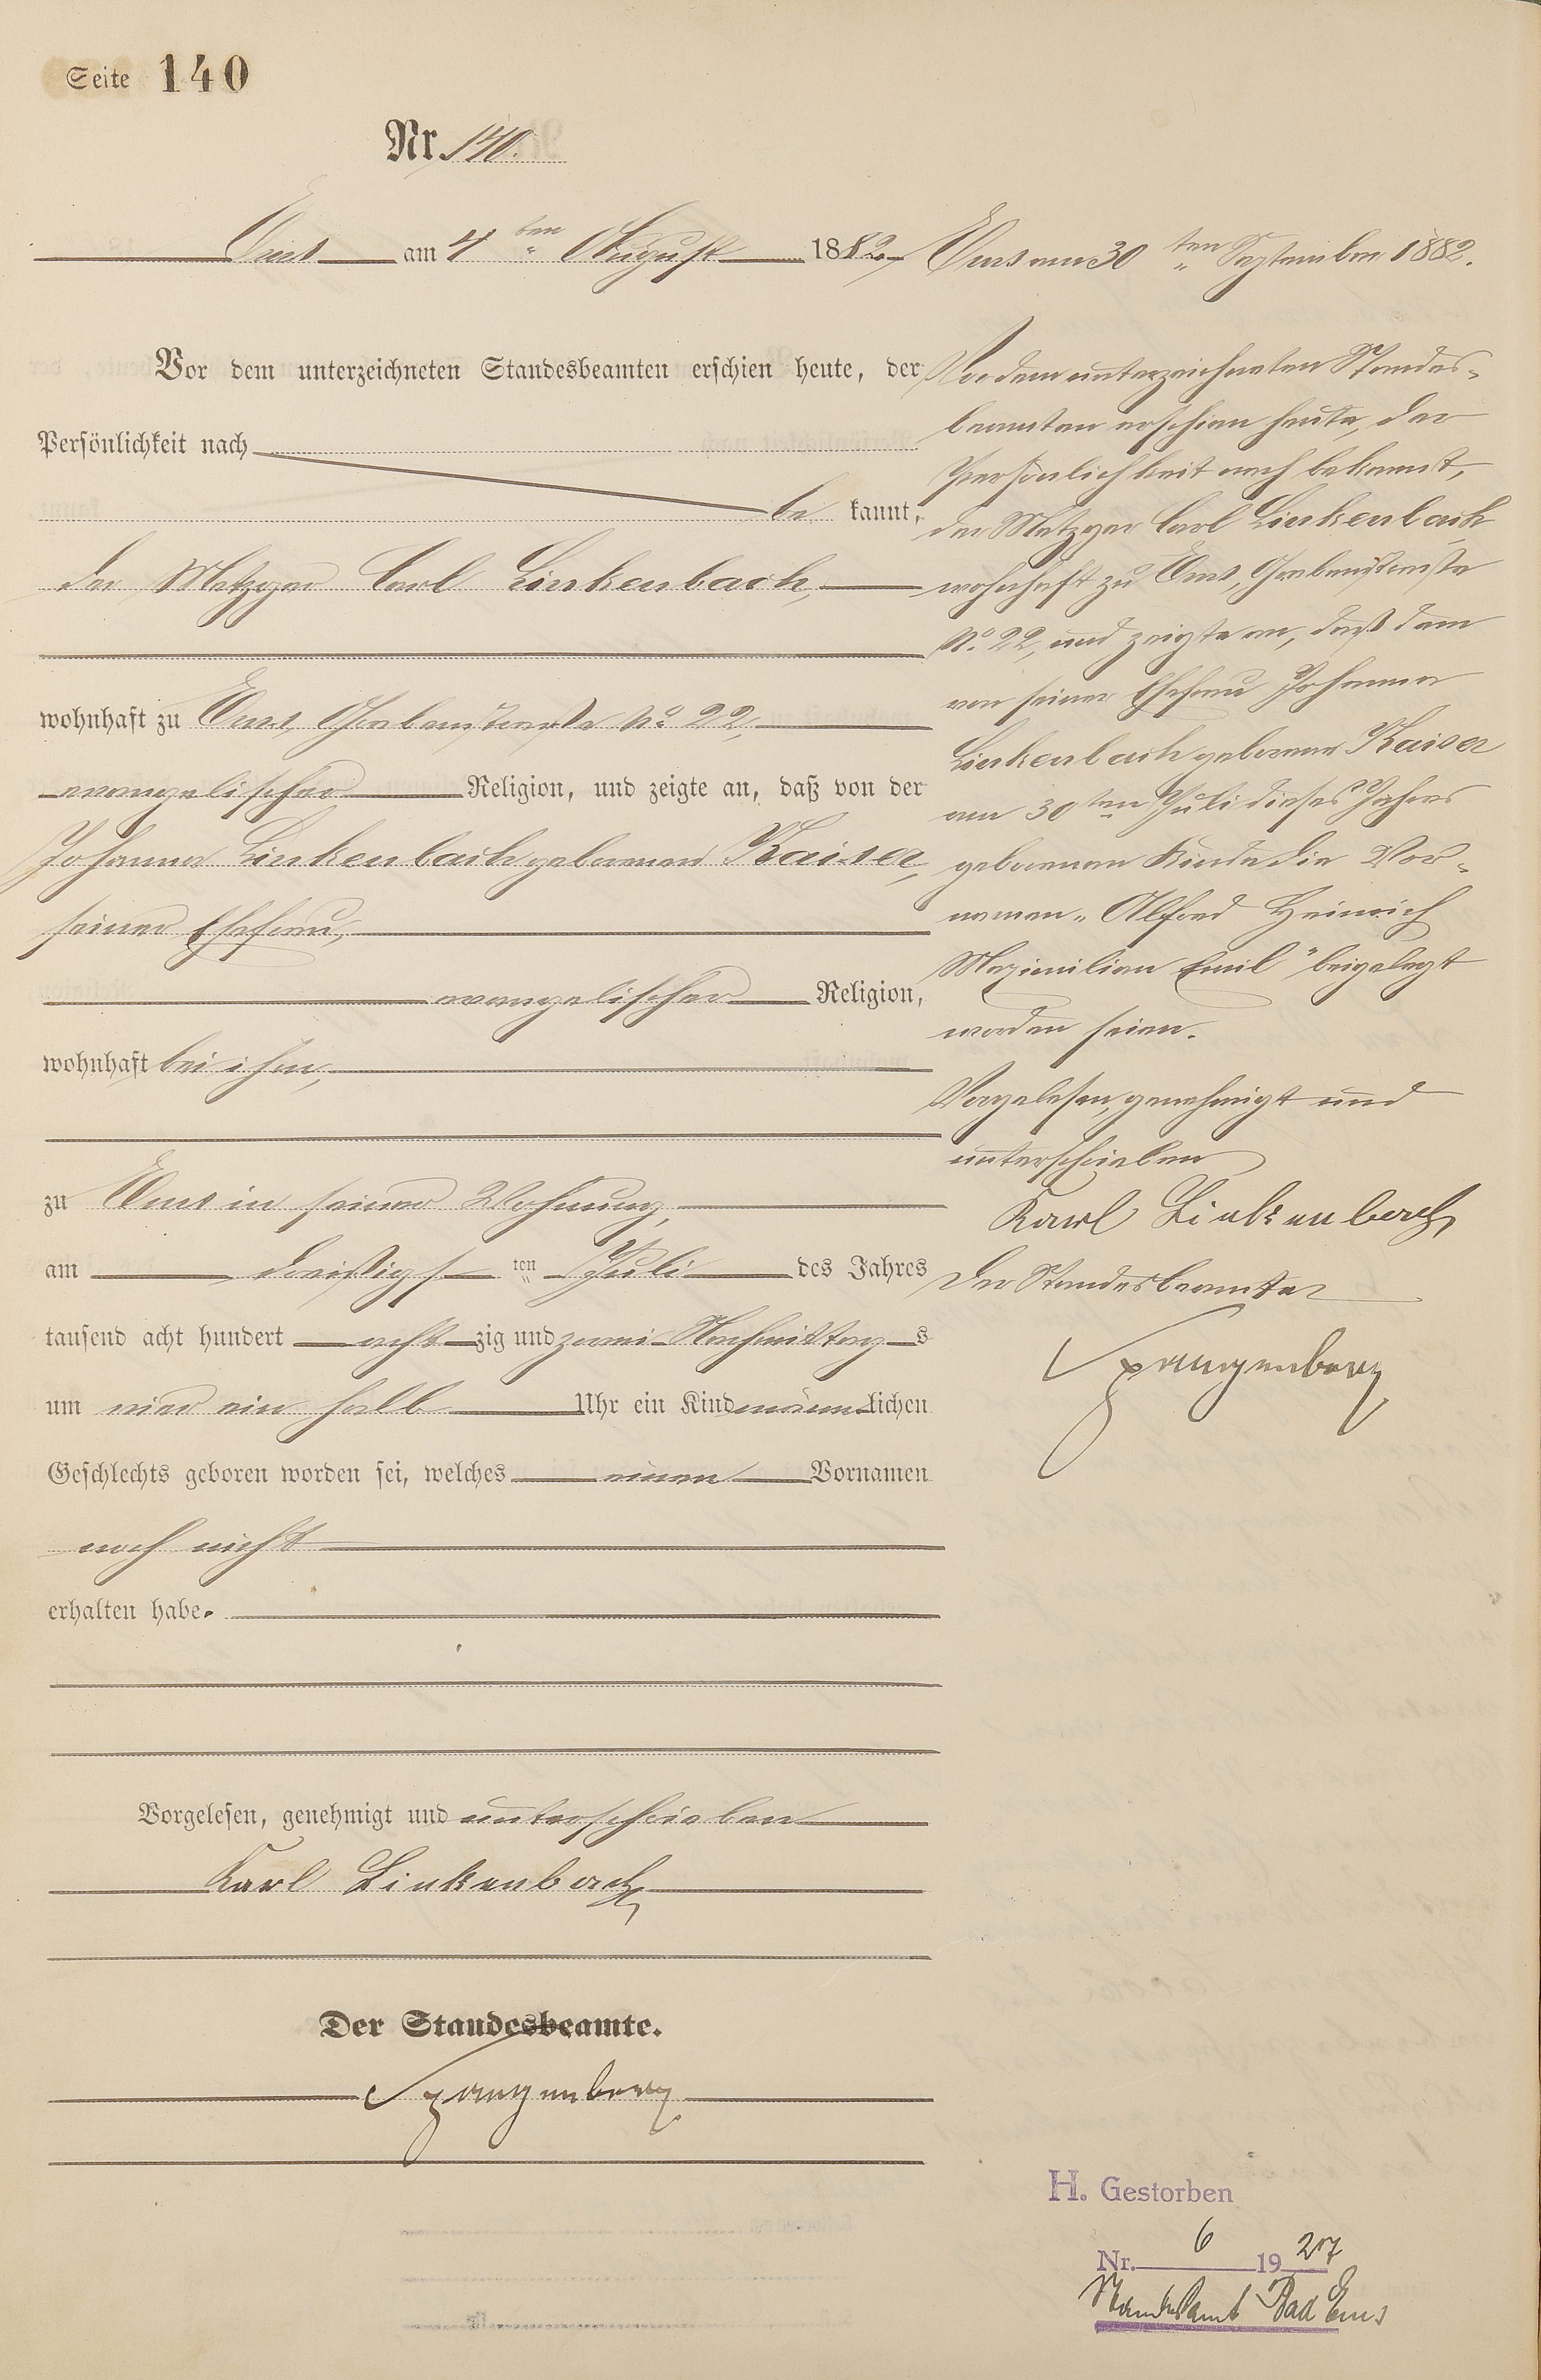 Seite 140
Nr. 140.
Ems am 4ten August 1882
Vor dem unterzeichneten Standesbeamten erschien heute, der
Persönlichkeit nach
be kannt,
der Metzger Carl Linkenbach,
wohnhaft zu Ems, Grabenstraße No. 22,
evangelischer Religion, und zeigte an, daß von der
Johanna Linkenbach geborenen Kaiser,
seiner Ehefrau,
evangelischer Religion,
wohnhaft bei ihm,
zu Ems in seiner Wohnung,
am dreißigsten Juli des Jahres
tausend acht hundert acht zig und zwei Nachmittags
um vier ein halb Uhr ein Kind männlichen
Geschlechts geboren worden sei, welches einen Vornamen
noch nicht
erhalten habe.
Vorgelesen, genehmigt und unterschrieben
Karl Linkenbach
Der Standesbeamte.
Spangenberg
Ems am 30ten September 1882.
Vor dem unterzeichneten Standes-
beamten erschien heute, der
Persönlichkeit nach bekannt,
der Metzger Carl Linkenbach
wohnhaft zu Ems, Grabenstraße
No. 22, und zeigte an, daß dem
von seiner Ehefrau Johanna
Linkenbach geborenen Kaiser
am 30ten Juli dieses Jahres
geborenen Kinde die Vor-
namen „Alfred Heinrich
Maximilian Emil" beigelegt
worden seien.
Vorgelesen, genehmigt und
unterschrieben
Karl Linkenbach
Der Standesbeamte
Spangenberg
H. Gestorben
Nr. 6 1927
Standesamt Bad Ems